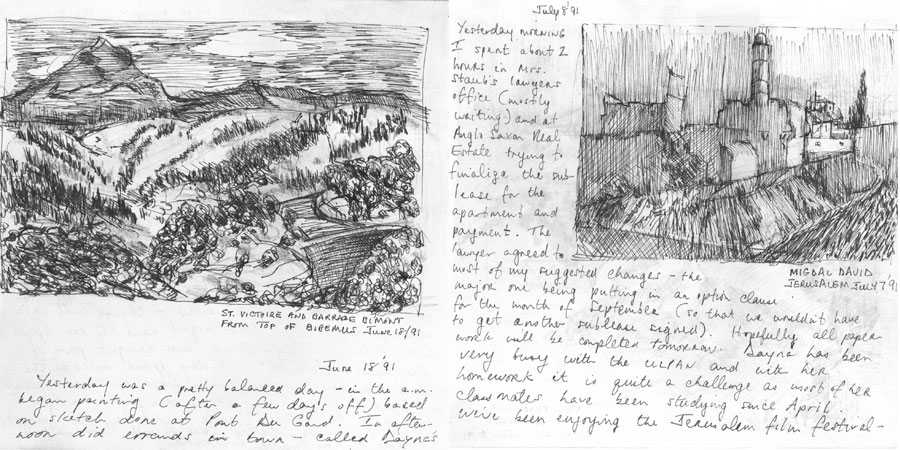 ST. VICTOIRE AND BARRAGE BIMONT
FROM TOP OF BIBEMUS June 18/91
June 18 '91
Yesterday was a pretty balanced day - in the a.m.
began painting (after a few day's off) based
on sketch done at Pont Du Gard. In after-
noon did errands in town - called Dayna's
July 8 '91
Yesterday morning
I spent about 2
hours in Mrs.
Staub's lawyers
office (mostly
waiting) and at
Anglo Saxon Real
Estate trying to
finalize the sub
lease for the
apartment and
payment. The
lawyer agreed to
most of my suggested changes - the
major one being putting in an option clause
for the month of September (so that we wouldn't have
to get another sublease signed). Hopefully all paper
work will be completed tomorrow. Dayna has been
very busy with the ULPAN and with her
homework it is quite a challenge as most of her
classmates have been studying since April.
We've been enjoying the Jerusalem film festival -
MIGDAL DAVID
JERUSALEM JULY 7 '91